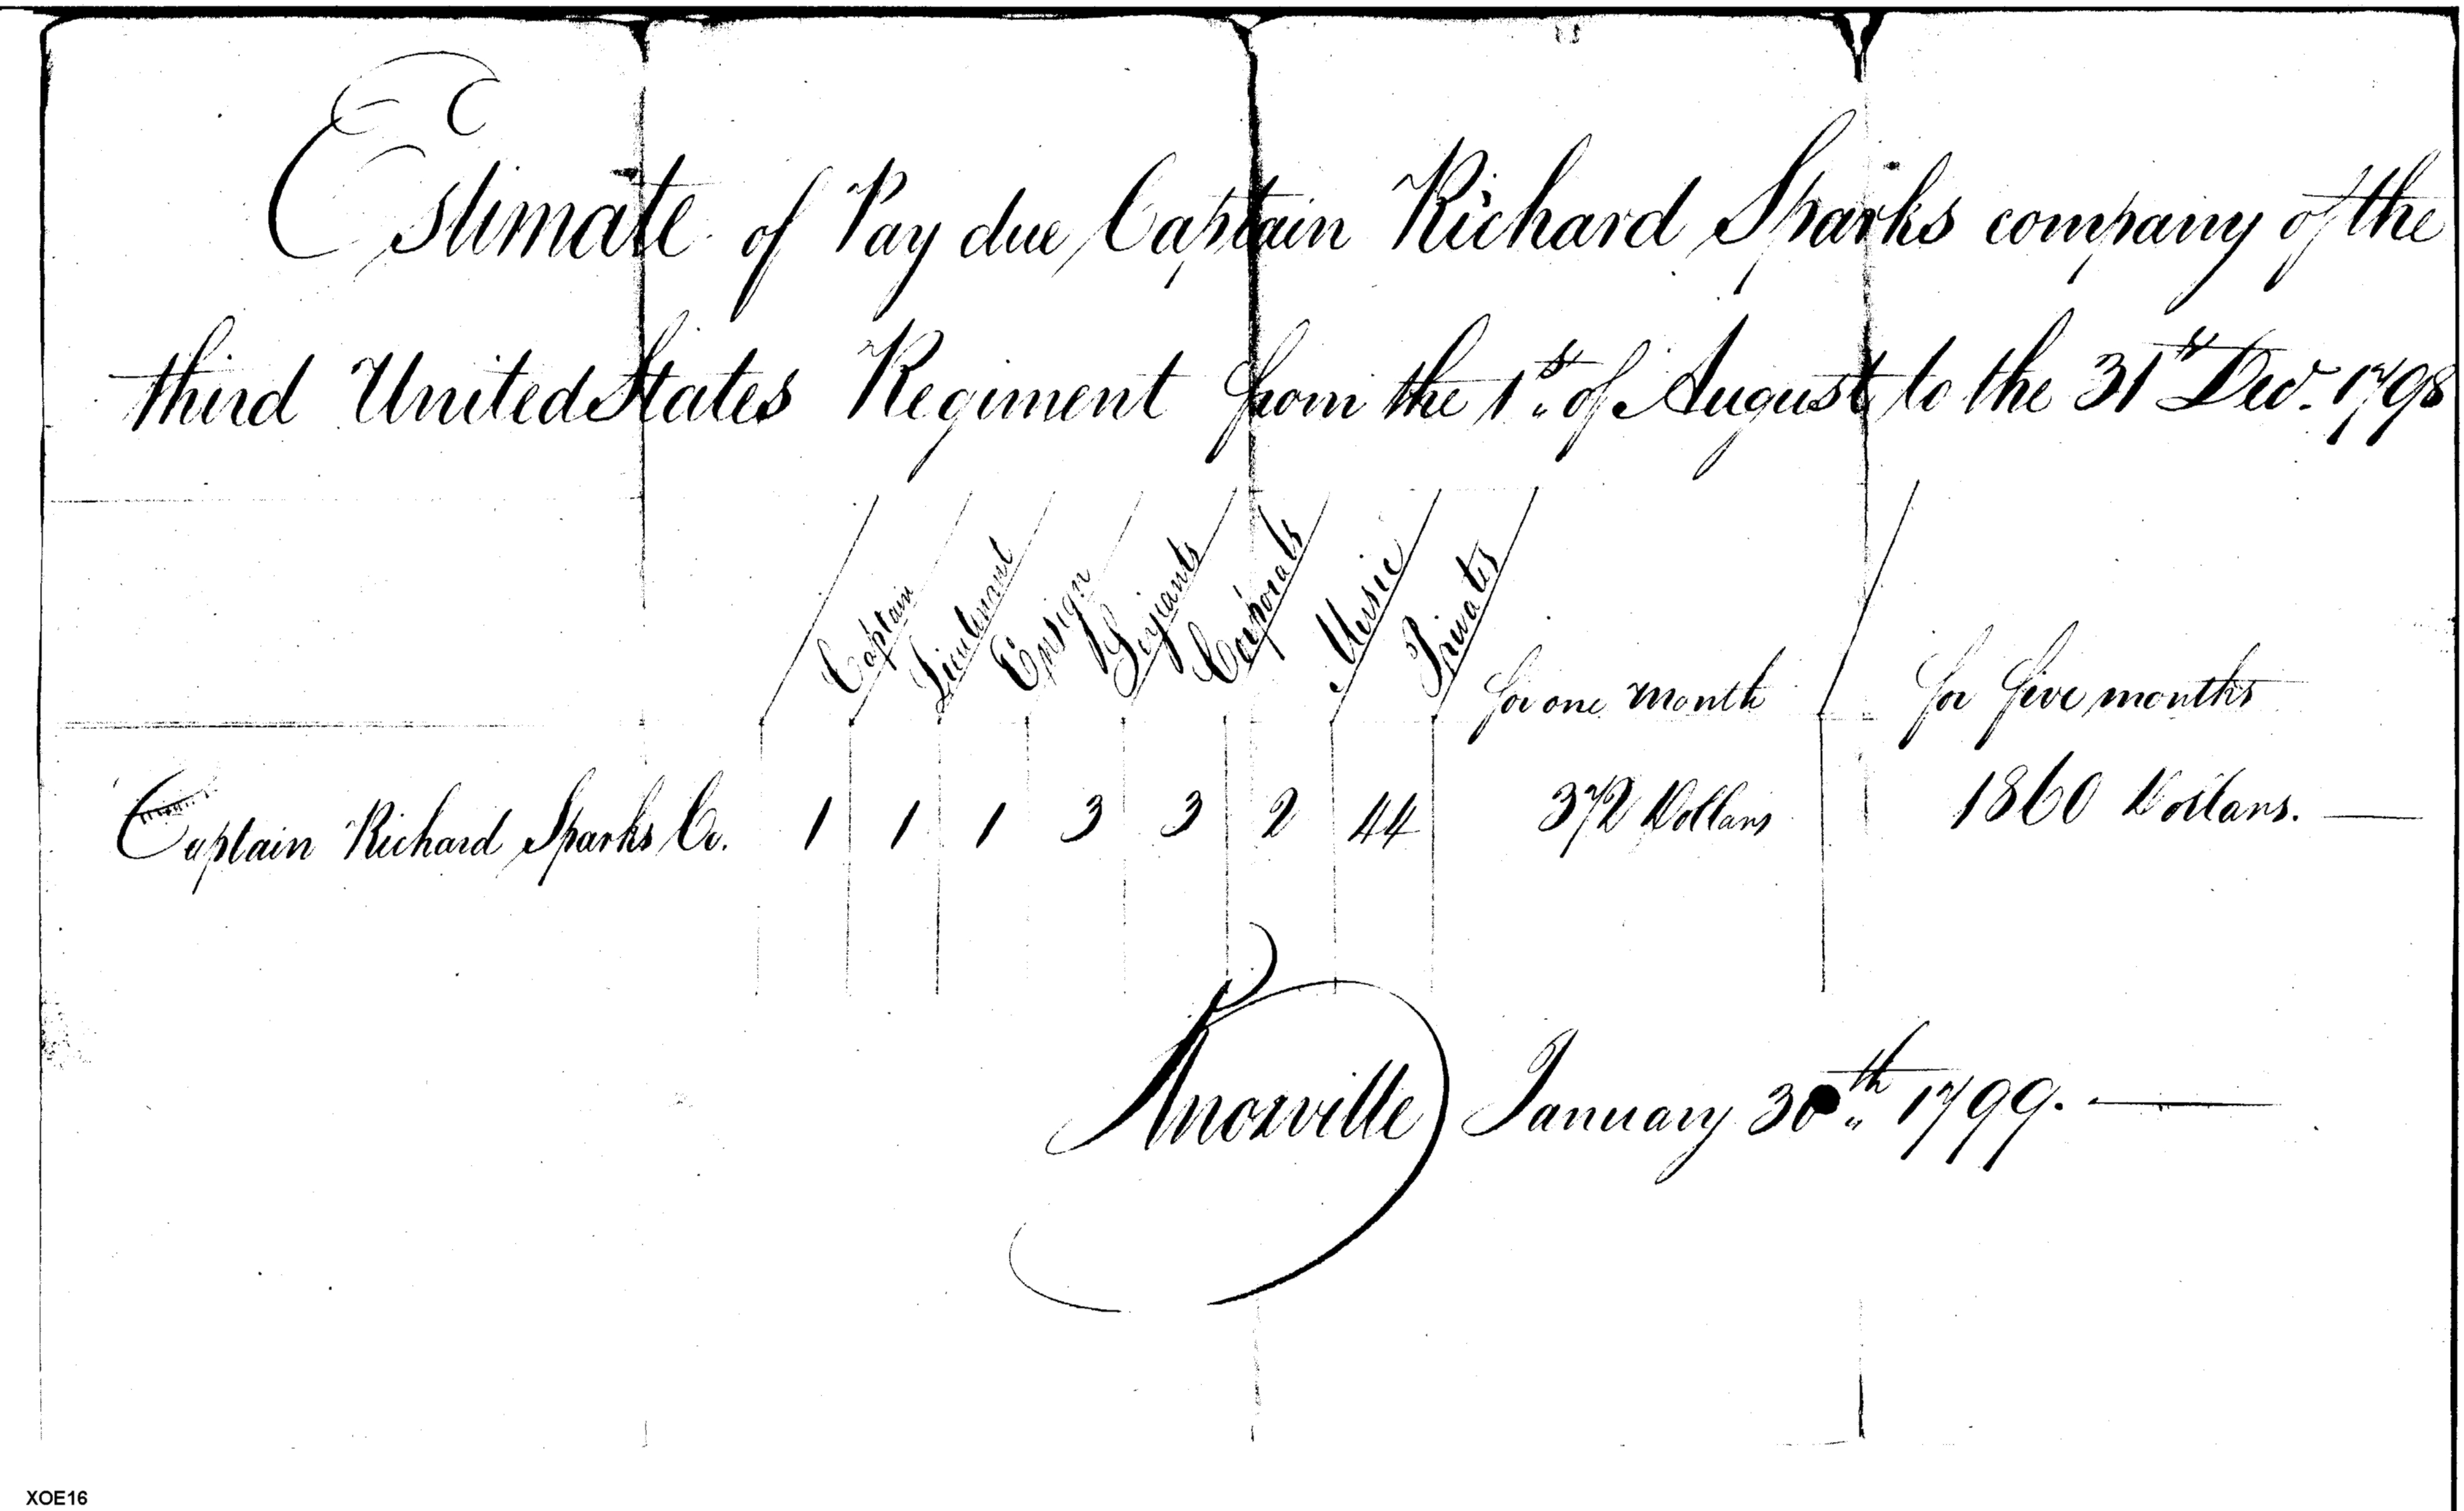 Estimate of Pay due Captain Richard Sparks company of the
third United States Regiment from the 1st of August to the 31st Decr. 1798
Captain Lieutenant Ensign Serjeants Corporals Music Privates for one month for five months
Captain Richard Sparks Co. 1 1 1 3 3 2 44 372 Dollars 1860 Dollars.
Knoxville January 30th 1799.
XOE16